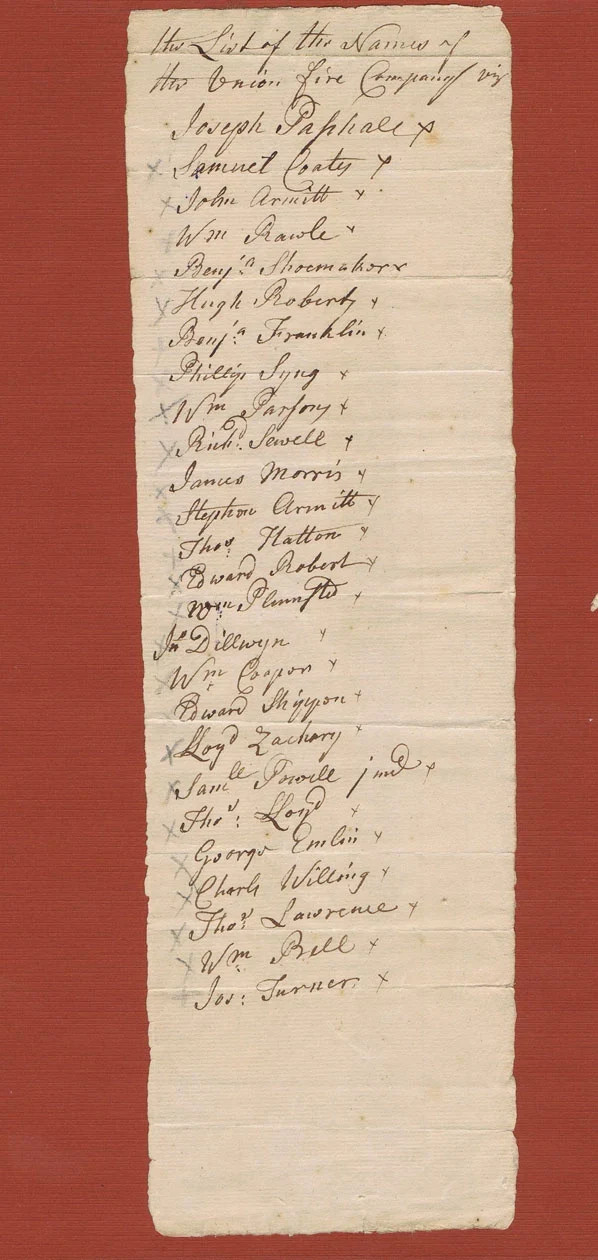 the List of the Names of
the Union fire Company viz
Joseph Paschall x
x Samuel Coats x
x John Armitt x
x Wm Rawle x
Benja Shoemaker x
x Hugh Roberts x
x Benja: Franklin x
x Phillip Syng x
x Wm Parsons x
x Richd: Sewell x
x James Morris x
x Stephen Armitt x
x Thos: Hatton x
x Edward Robert x
x Wm Plumsted x
x Jno Dillwyn x
x Wm Cooper x
x Edward Shippen x
x Lloyd Zachary x
x Samll Powell junr x
x Thos: Lloyd x
x George Emlin x
x Charls Willing x
x Thos: Lawrence x
x Wm Bell x
x Jos: Turner x